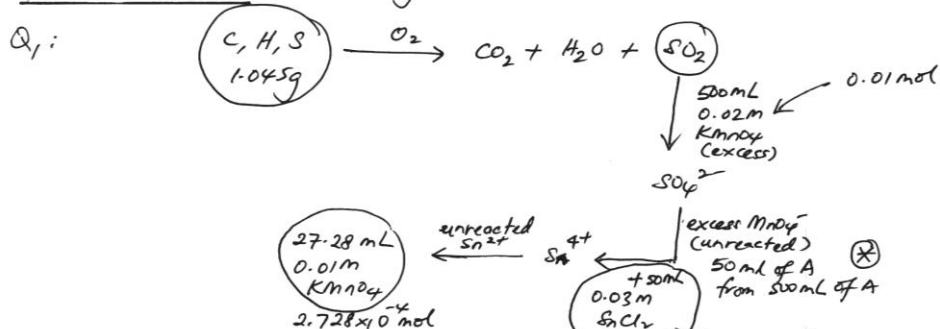 Q1:
C, H, S
1.045g
O2
CO2 + H2O + SO2
500mL
0.02M
KMnO4
(excess)
0.01 mol
SO4 2-
excess MnO4-
(unreacted)
50ml of A
from 500mL of A
+50mL
0.03M
SnCl2
Sn 4+
unreacted
Sn2+
27.28 mL
0.01M
KMnO4
2.728x10-4 mol